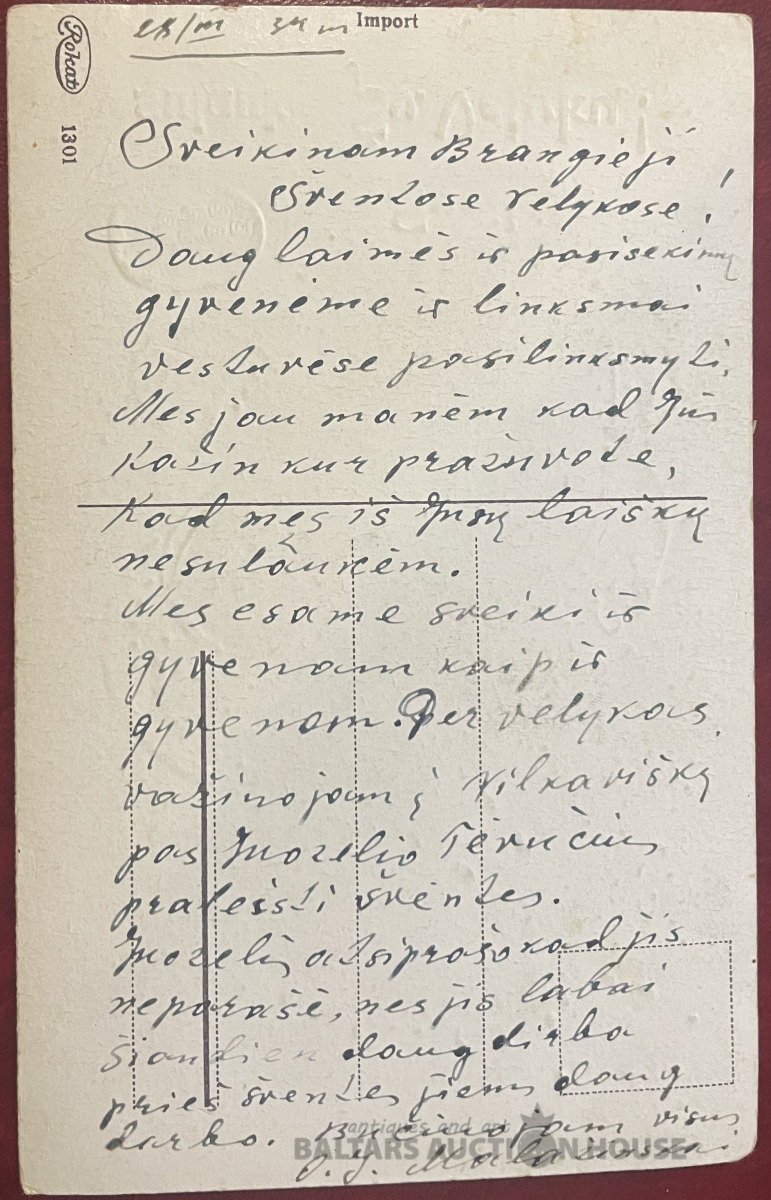 28/III 34 m
Import
Rokat
1301
Sveikinam Brangieji
Šventose Velykose!
Daug laimės ir pasisekimų
gyvenėme ir linksmai
vesturėse pasilinksmyti.
Mes jau manėm kad Jūs
Kažin kur pražuvote,
Kad mes iš Jusų laiškų
nesulaukėm.
Mes esame sveiki ir
gyvenam kaip ir
gyvenam. Per velykas
važinojam į Vilkavišką
pas Juozelio Tėvučius
praleisti šventes.
Juozelis atsiprašo kad jis
neparašė, nes jis labai
šiandien daug dirba
prieš šventes jiems daug
darbo. Bučinojam visus
J. J.
antiques and art
BALTARS AUCTION HOUSE